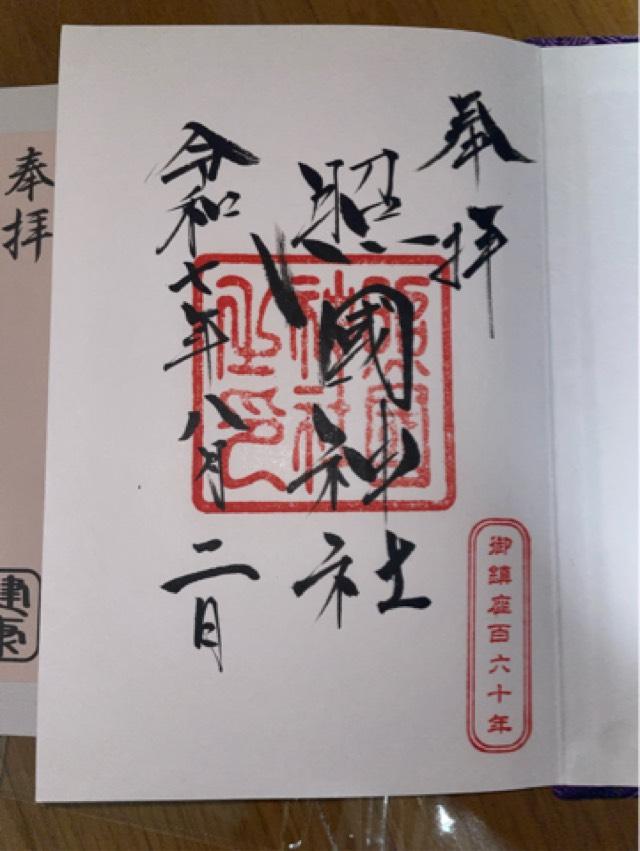 奉拝
照國神社
令和七年八月二日
照国神社之印
御鎮座百六十年
奉拝
健康